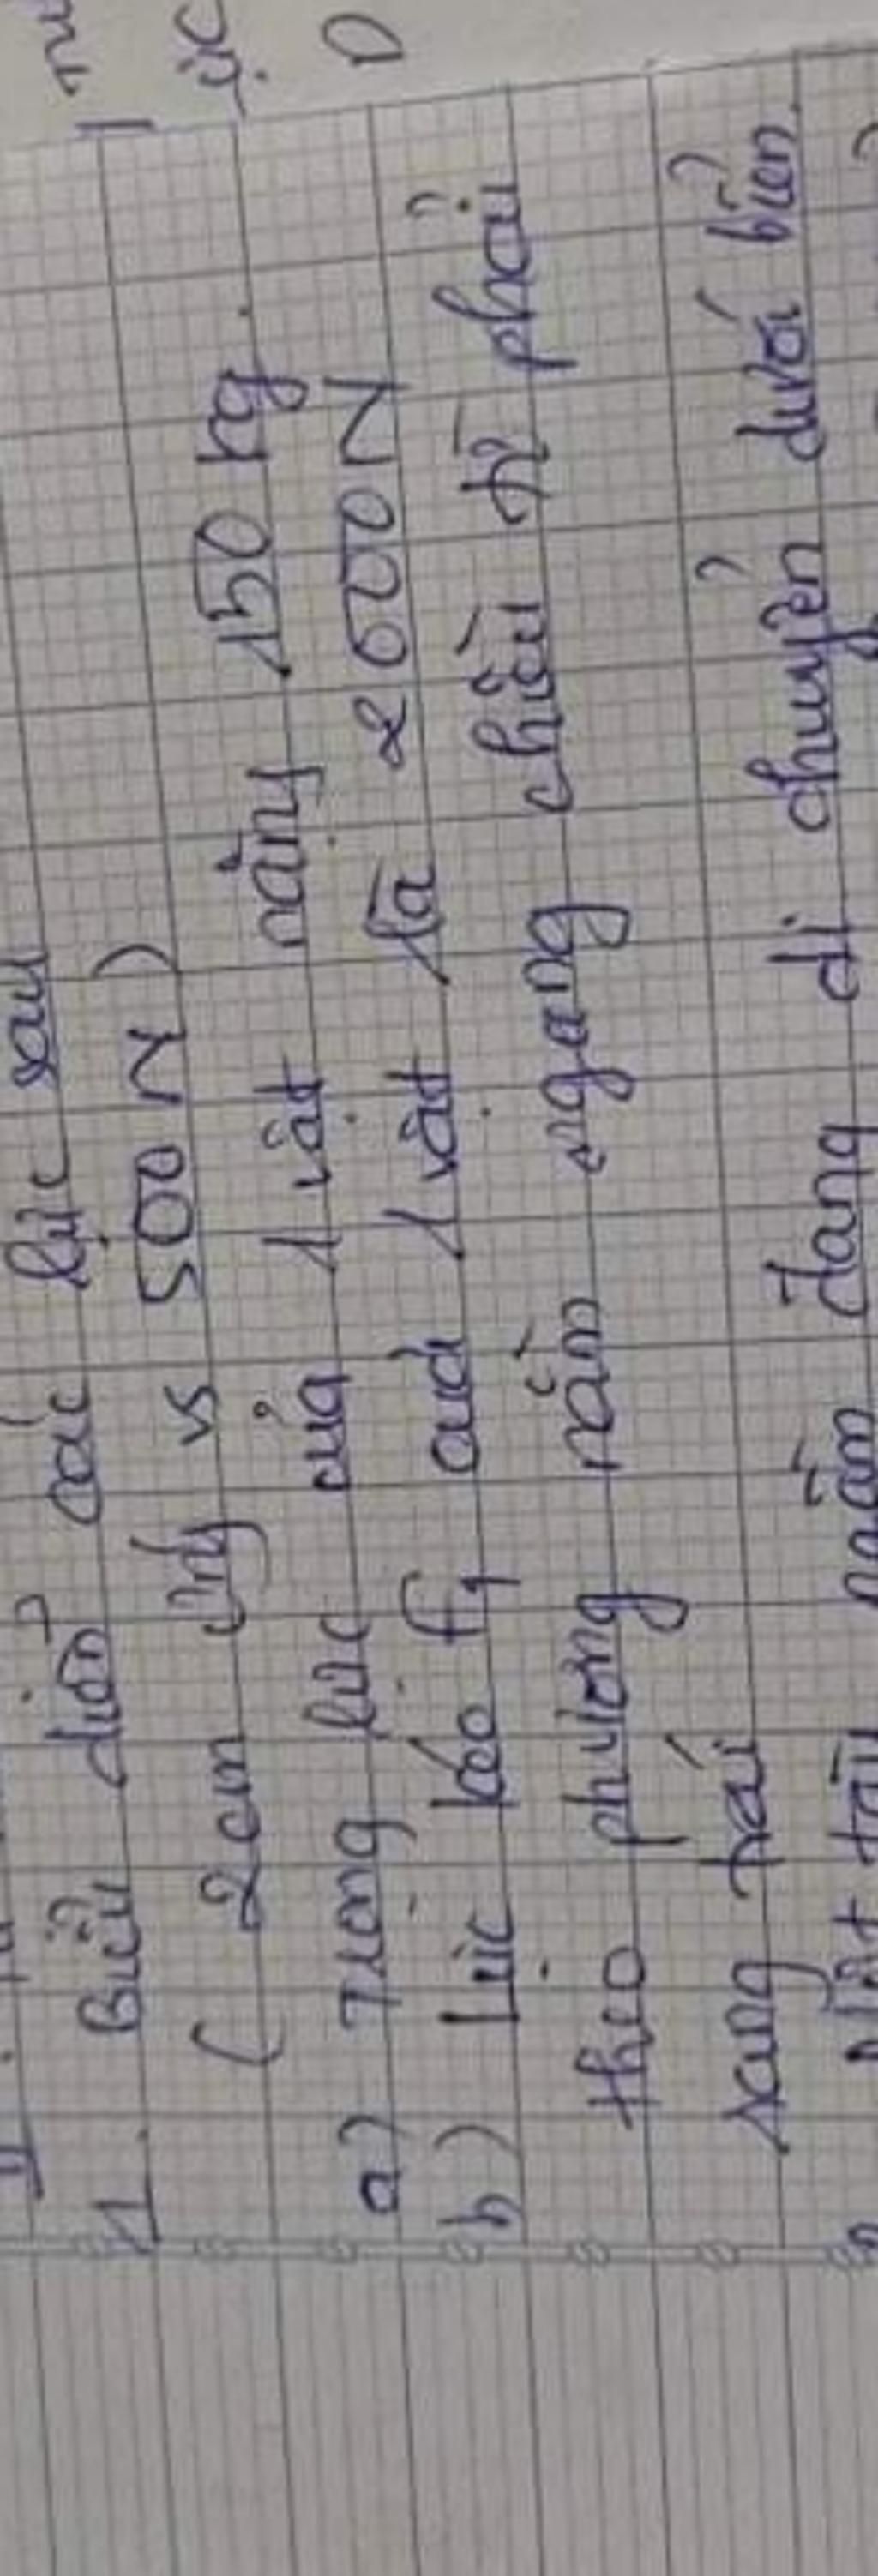 1. Biểu diễn các lực sau
( 2cm ứng vs 500 N )
a) Trọng lực của 1 vật nặng 150 kg.
b) Lực kéo f1 của 1 vật là 2000N
theo phương nằm ngang chiều từ phải
sang trái
Một tàu ngầm đang di chuyển dưới biển.